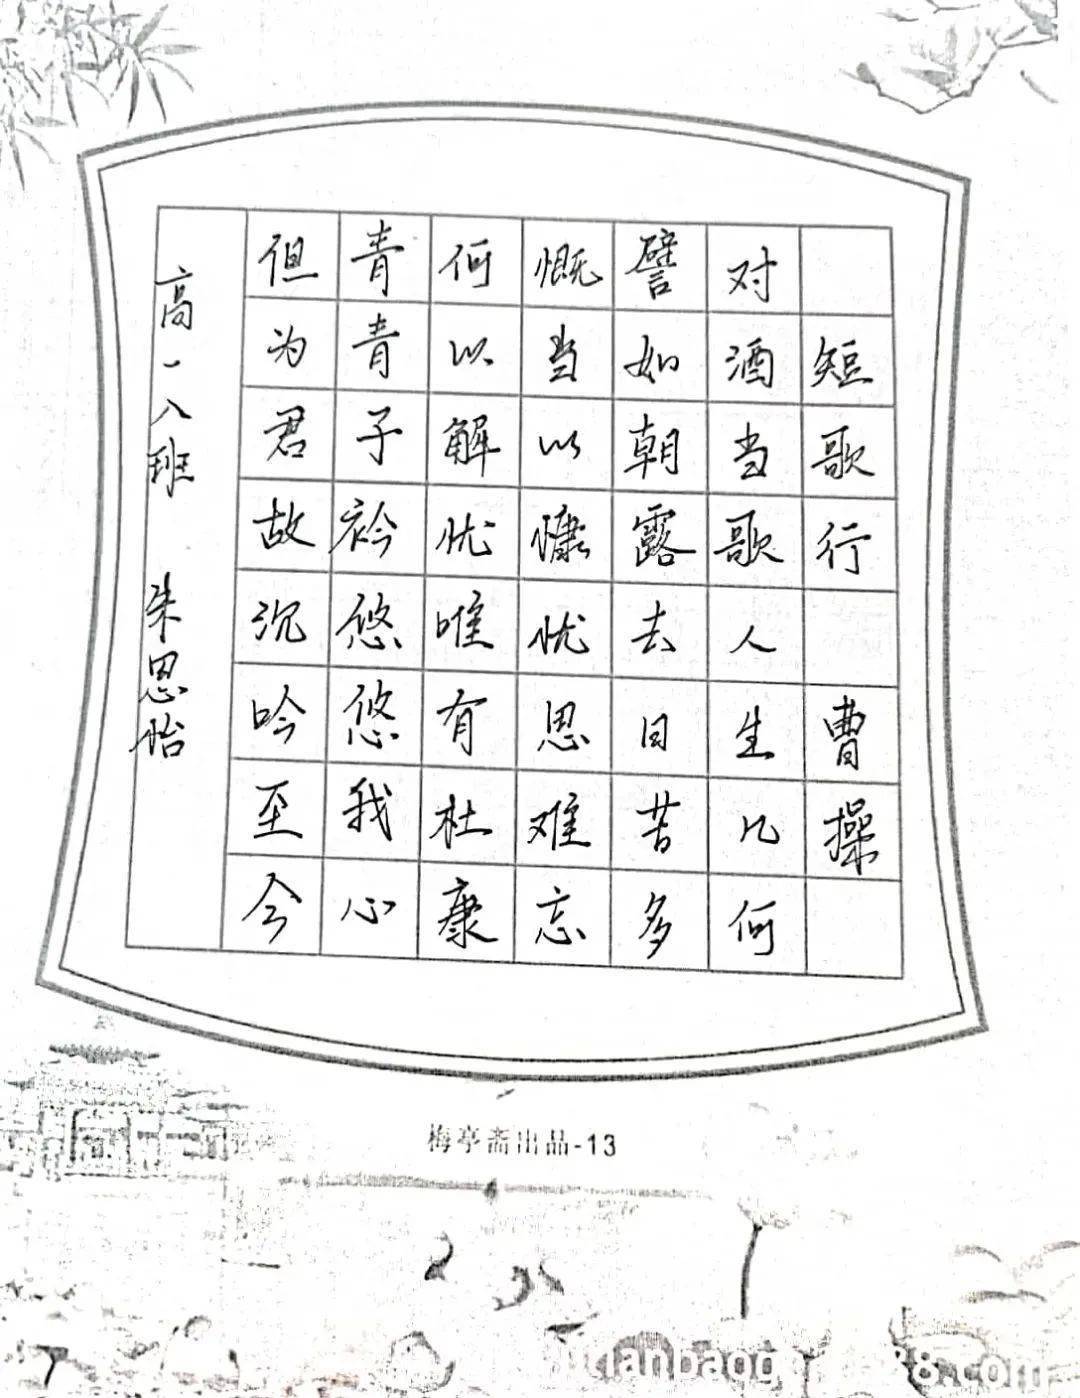 短歌行 曹操
对酒当歌人生几何
譬如朝露去日苦多
慨当以慷忧思难忘
何以解忧唯有杜康
青青子衿悠悠我心
但为君故沉吟至今
高一八班 朱思怡
梅亭斋出品-13